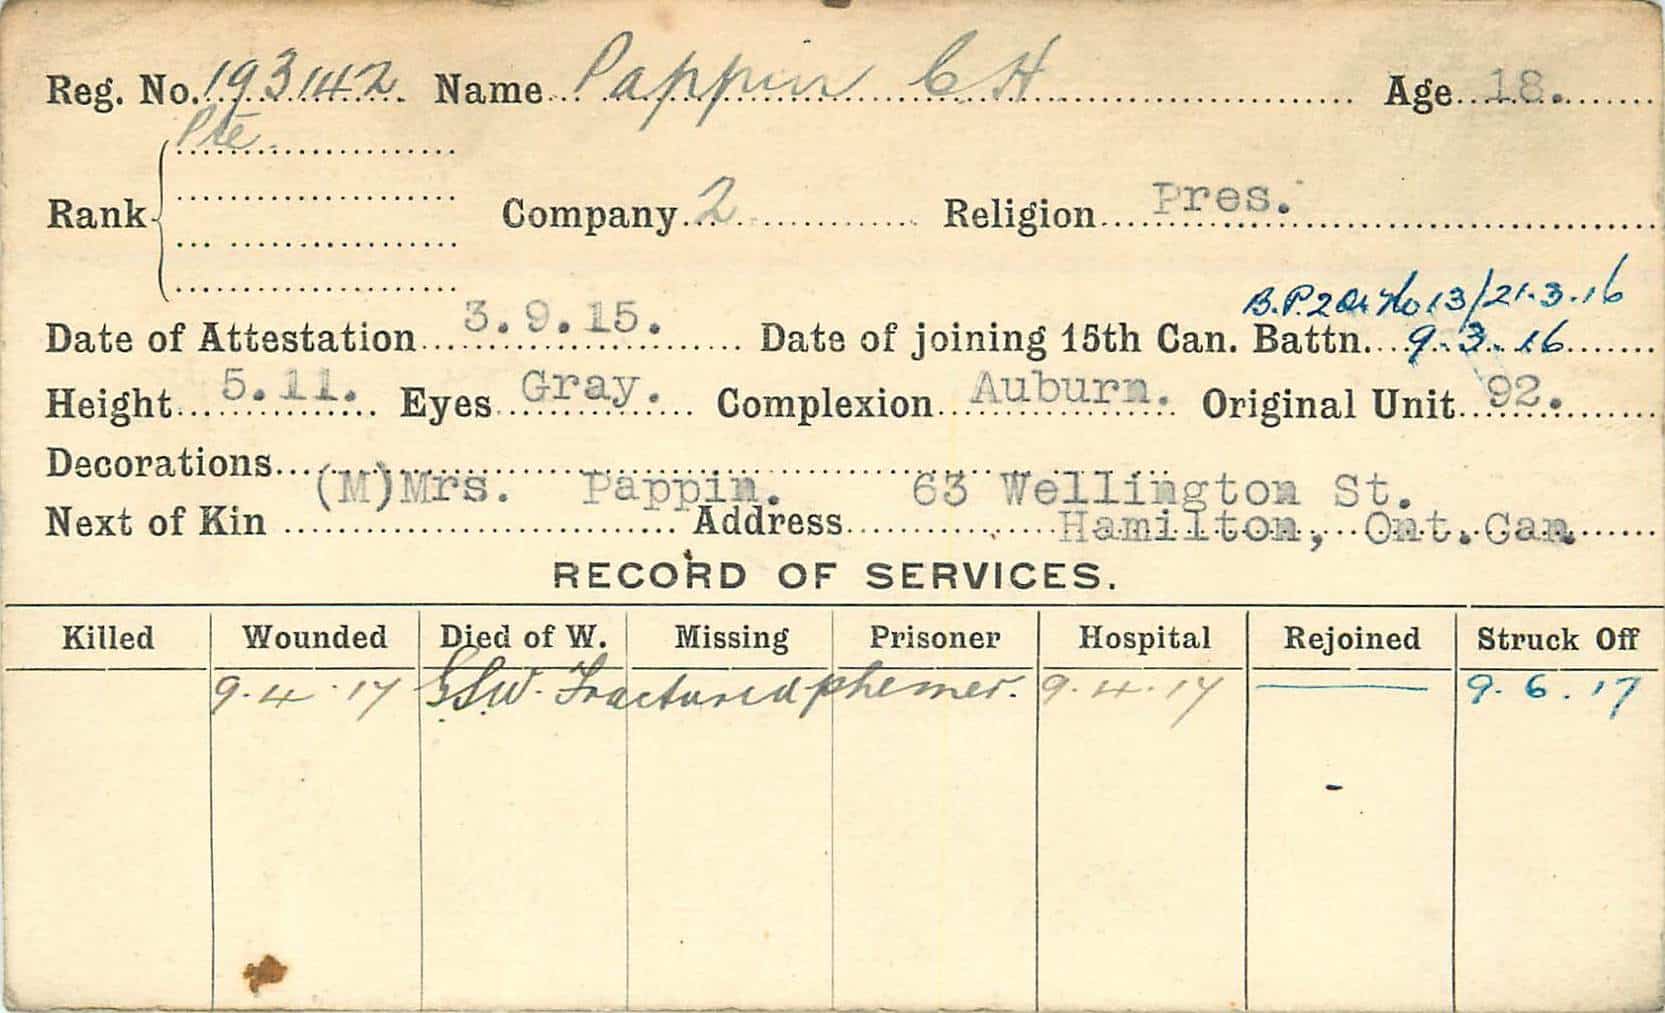 Reg. No. 193142 Name Pappin C H Age 18.
Pte
Rank Company 2 Religion Pres.
B.P. 2 Or No 13/21.3.16
Date of Attestation 3.9.15. Date of joining 15th Can. Battn. 9.3.16
Height 5.11. Eyes Gray. Complexion Auburn. Original Unit 92.
Decorations
(M)Mrs. Pappin. 63 Wellington St.
Next of Kin Address Hamilton, Ont. Can.
RECORD OF SERVICES.
Killed Wounded Died of W. Missing Prisoner Hospital Rejoined Struck Off
9.4.17 GSW. Fractured phemer. 9.4.17 — 9.6.17